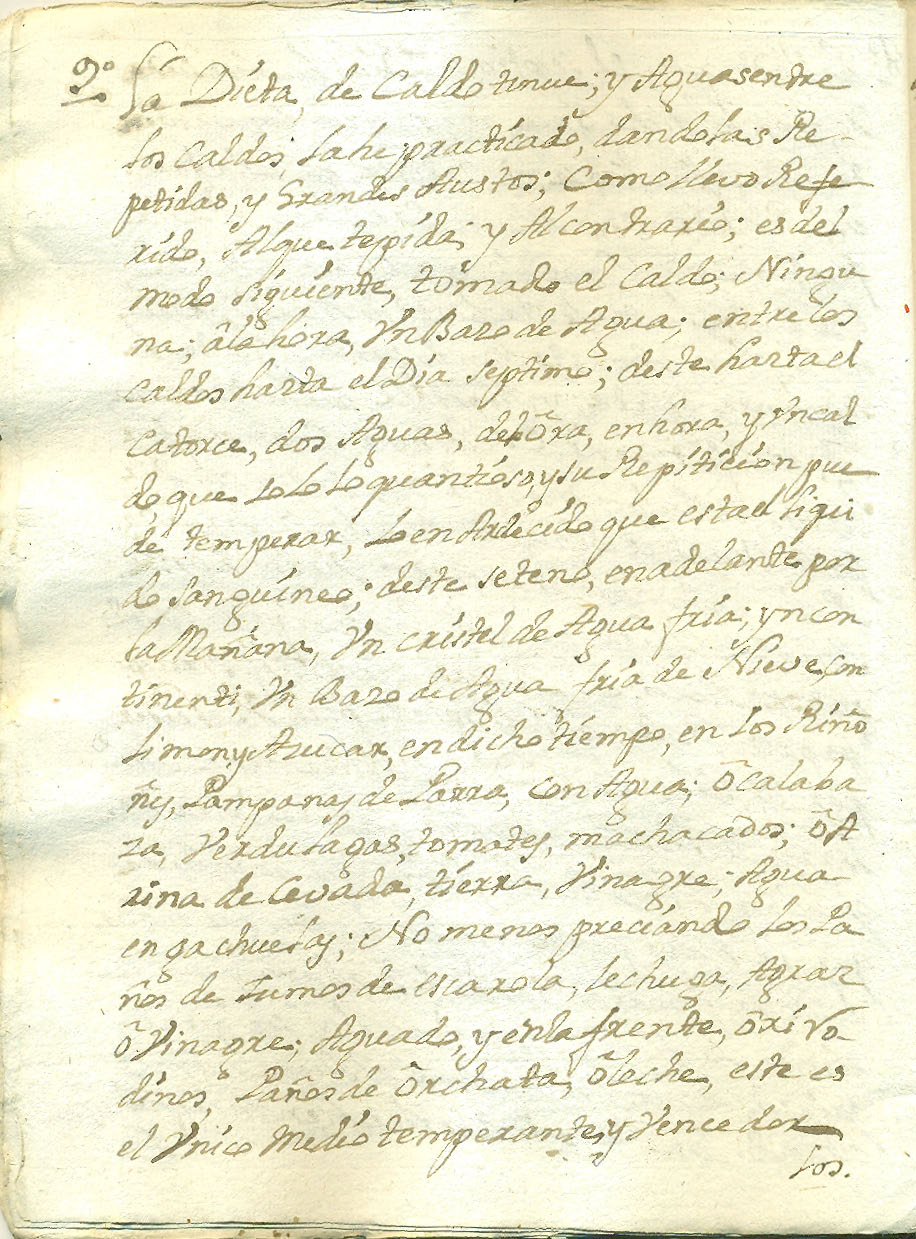 2º La Dieta, de Caldo tinue; y Aguas entre
los Caldos, la he practicado, dandolas Re-
petidas, y Grandes Austos; Como llevo Refe
rido, Alque tepida; y Al contrario; es del
modo siguiente, tomado el Caldo; Ningu
na; âla hora, Vn Bazo de Agua; entre los
Caldos harta el Dia septimo; deste harta el
Catorce, dos Aguas, de hõra, en hora, y Vn cal
do, que solo lo quantioso, y su Repiticion pue
de temperar, lo en Ardecido que esta el liqui
do sanguineo; deste seteno, en adelante por
la Mañana, Vn cristel de Agua fria; yncon
tinenti, Vn Bazo de Agua fria de Nieve, con
limon y Azucar, en dicho tiempo, en los Riño
ñes, Pampanas de Parra, con Agua; õ calaba
za, Verdulagas, tomates, machacados; õ A
rina de Cevada, tierra, Vinagre; Agua
en gachuelas; No menos preciando los Pa
ños de sumos de escarola, lechuga, Agraz
õ Vinagre; Aguado, y en la frente, õ rivo-
dinos, Paños de õrchata, õ leche, este es
el Vnico Medio temperante, y Vencedor
los.